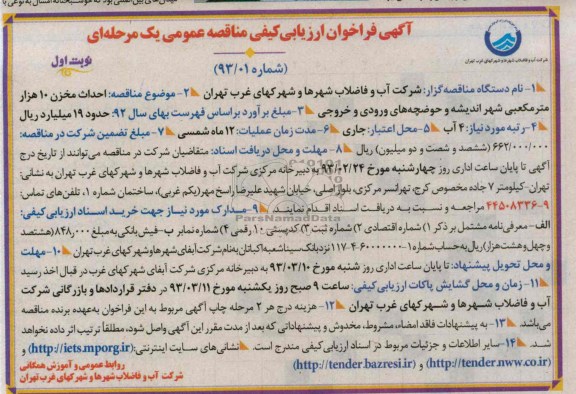 آگهی فراخوان ارزیابی کیفی مناقصه عمومی یک مرحله‌ای
(شماره ۹۳/۰۱)
نوبت اول
شرکت آب و فاضلاب شهرها و شهرکهای غرب تهران
۱- نام دستگاه مناقصه‌گزار: شرکت آب و فاضلاب شهرها و شهرکهای غرب تهران ۲- موضوع مناقصه: احداث مخزن ۱۰ هزار
مترمکعبی شهر اندیشه و حوضچه‌های ورودی و خروجی ۳- مبلغ برآورد براساس فهرست بهای سال ۹۲: حدود ۱۹ میلیارد ریال
۴- رتبه مورد نیاز: ۴ آب ۵- محل اعتبار: جاری ۶- مدت زمان عملیات: ۱۲ ماه شمسی ۷- مبلغ تضمین شرکت در مناقصه:
۶۶۲/۰۰۰/۰۰۰ (ششصد و شصت و دو میلیون) ریال ۸- مهلت و محل دریافت اسناد: متقاضیان شرکت در مناقصه می‌توانند از تاریخ درج
آگهی تا پایان ساعت اداری روز چهارشنبه مورخ ۹۳/۰۲/۲۴ به دبیرخانه مرکزی شرکت آب و فاضلاب شهرها و شهرکهای غرب تهران به نشانی:
تهران- کیلومتر ۷ جاده مخصوص کرج، تهرانسر مرکزی، بلوار اصلی، خیابان شهید علیرضا راسخ مهر (یکم غربی)، ساختمان شماره ۱، تلفن‌های تماس:
۹-۴۴۵۰۸۳۳۶ مراجعه و نسبت به دریافت اسناد اقدام نمایند. ۹- مدارک مورد نیاز جهت خرید اسناد ارزیابی کیفی:
الف- معرفی‌نامه مشتمل بر ذکر ۱) شماره اقتصادی ۲) شماره ثبت ۳) کدپستی ۱۰ رقمی ۴) شماره نمابر ب- فیش بانکی به مبلغ ۸۴۸/۰۰۰ (هشتصد
و چهل و هشت هزار) ریال به حساب شماره ۱-۴۰۶۰۰۰۰۰۰-۱۱۷ نزد بانک سینا شعبه اکباتان به نام شرکت آبفای شهرها و شهرکهای غرب تهران ۱۰- مهلت
و محل تحویل پیشنهاد: تا پایان ساعت اداری روز شنبه مورخ ۹۳/۰۳/۱۰ به دبیرخانه مرکزی شرکت آبفای شهرکهای غرب در قبال اخذ رسید
۱۱- زمان و محل گشایش پاکات ارزیابی کیفی: ساعت ۹ صبح روز یکشنبه مورخ ۹۳/۰۳/۱۱ در دفتر قراردادها و بازرگانی شرکت
آب و فاضلاب شهرها و شهرکهای غرب تهران ۱۲- هزینه درج هر ۲ مرحله چاپ آگهی مربوط به این فراخوان به‌عهده برنده مناقصه
می‌باشد. ۱۳- به پیشنهادات فاقد امضاء، مشروط، مخدوش و پیشنهاداتی که بعد از مدت مقرر این آگهی واصل شود، مطلقاً ترتیب اثر داده نخواهد
شد. ۱۴- سایر اطلاعات و جزئیات مربوط در اسناد ارزیابی کیفی مندرج است. نشانی‌های سایت اینترنتی: (http://iets.mporg.ir) و
(http://tender.nww.co.ir) و (http://tender.bazresi.ir)
روابط عمومی و آموزش همگانی
شرکت آب و فاضلاب شهرها و شهرکهای غرب تهران
ParsNamadData